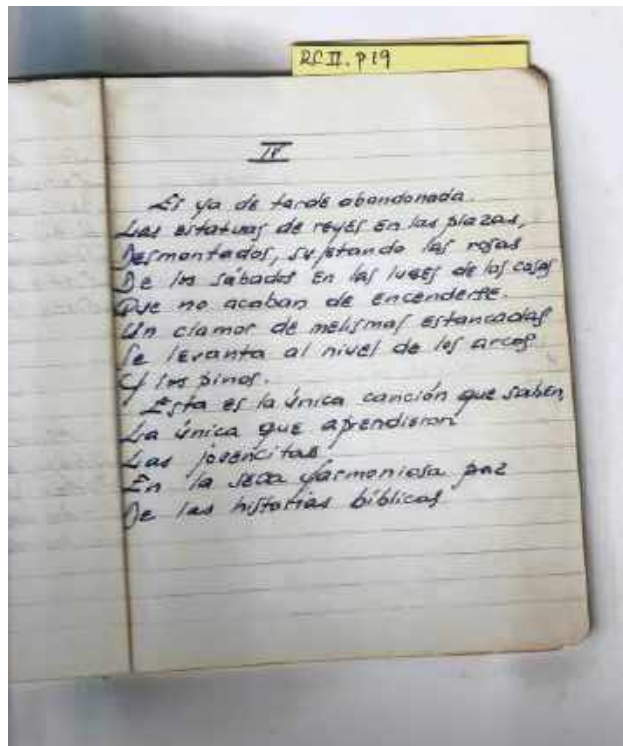 RC II. p 19
IV
Es ya de tarde abandonada.
Las estatuas de reyes en las plazas,
Desmontados, sujetando las rosas
De los sábados en las luces de las casas
Que no acaban de encenderse.
Un clamor de melismas estancadas
Se levanta al nivel de los arcos
Y los pinos.
Esta es la única canción que saben,
La única que aprendieron
Las jovencitas.
En la seca y armoniosa paz
De las historias bíblicas